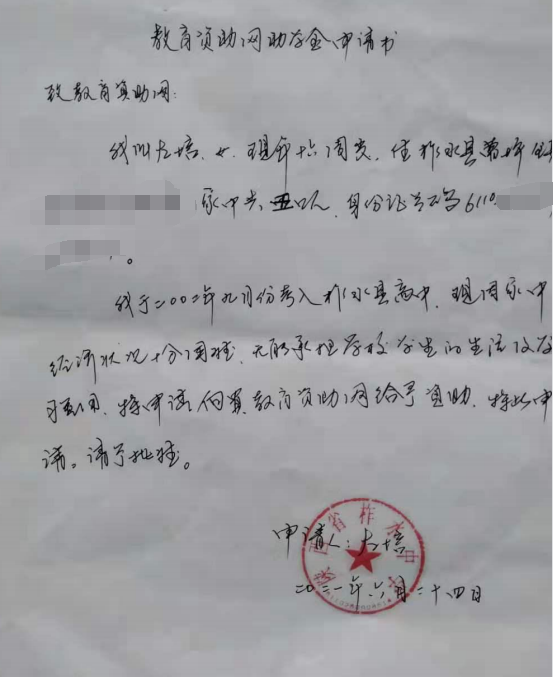 教育资助网助学金申请书
致教育资助网：
我叫大培，女，现年十六周岁，住柞水县
家中共五口人，身份证号码6110
。
我于二〇〇二年九月份考入柞水县高中，现因家中
经济状况十分困难，无能承担学校学生的生活及学
习费用，特申请向贵教育资助网给予资助，特此申
请。请予批准。
申请人：大培
二〇二一年六月二十四日